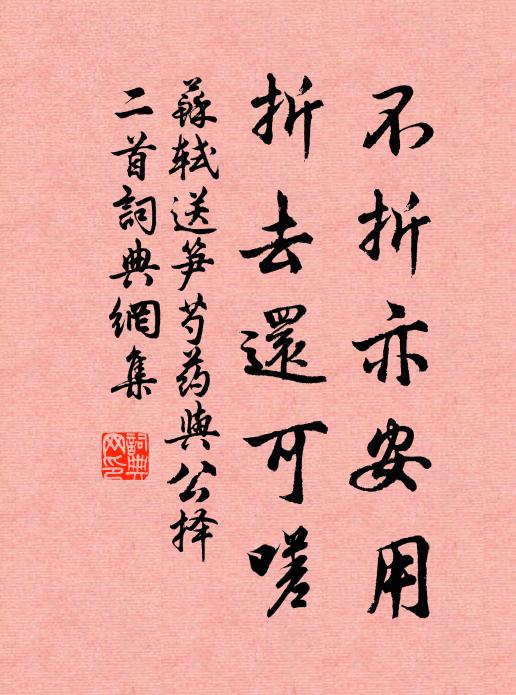 不折亦安用
折去還可嗟
蘇軾送笋芍药與公择
二首詞典網集
詞典网印